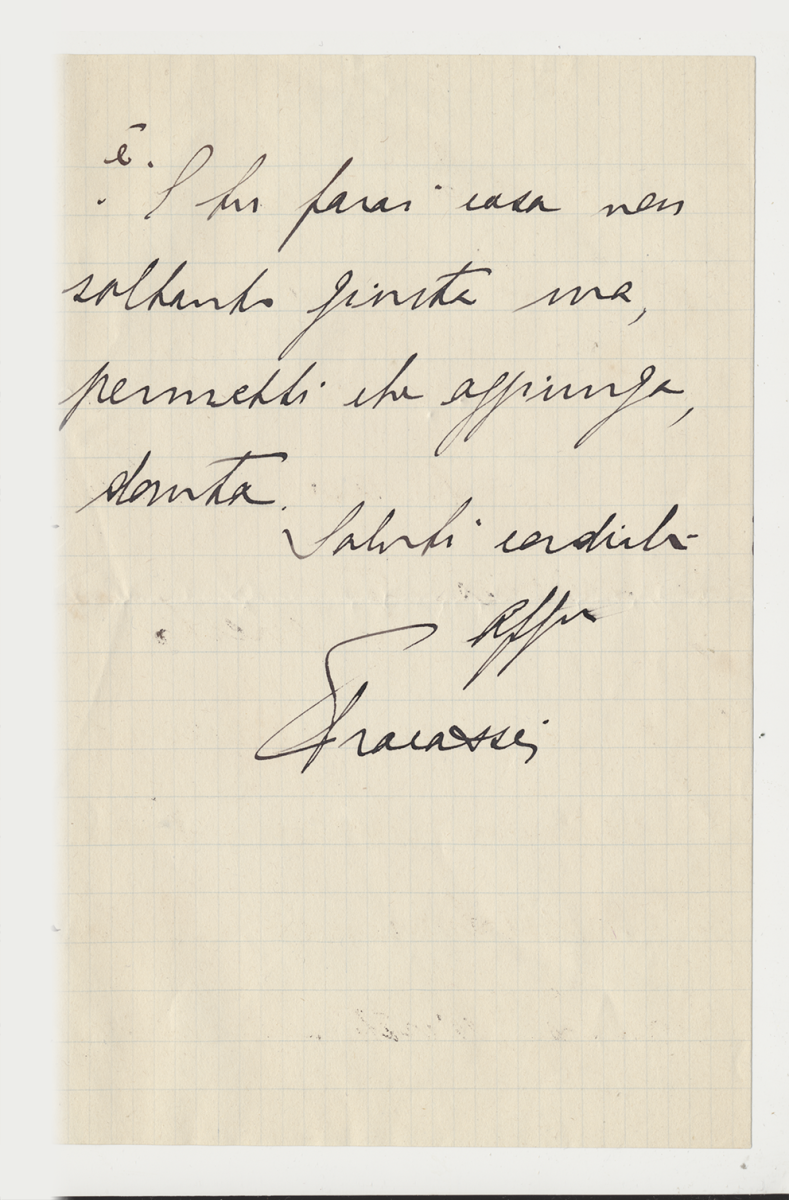 è.
E tu farai cosa non
soltanto giusta ma,
permetti che aggiunga,
dovuta.
Saluti cordiali-
Affmo
Fracassi